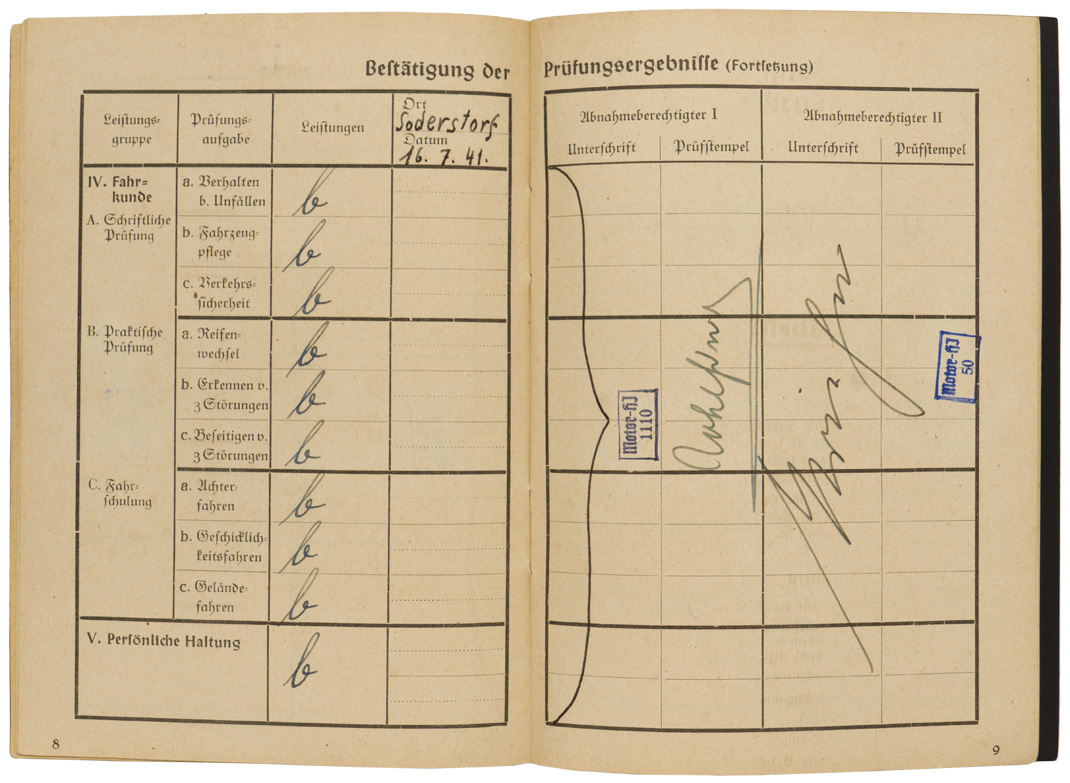 Bestätigung der Prüfungsergebnisse (Fortsetzung)
Leistungs-
gruppe
Prüfungs-
aufgabe
Leistungen
Ort
Soderstorf
Datum
16. 7. 41.
IV. Fahr-
kunde
A. Schriftliche
Prüfung
a. Verhalten
b. Unfällen
b
b. Fahrzeug-
pflege
b
c. Verkehrs-
sicherheit
b
B. Praktische
Prüfung
a. Reifen-
wechsel
b
b. Erkennen v.
3 Störungen
b
c. Beseitigen v.
3 Störungen
b
C. Fahr-
schulung
a. Achter-
fahren
b
b. Geschicklich-
keitsfahren
b
c. Gelände-
fahren
b
V. Persönliche Haltung
b
8
Abnahmeberechtigter I
Abnahmeberechtigter II
Unterschrift
Prüfstempel
Unterschrift
Prüfstempel
Motor-HJ
1110
Motor-HJ
50
9